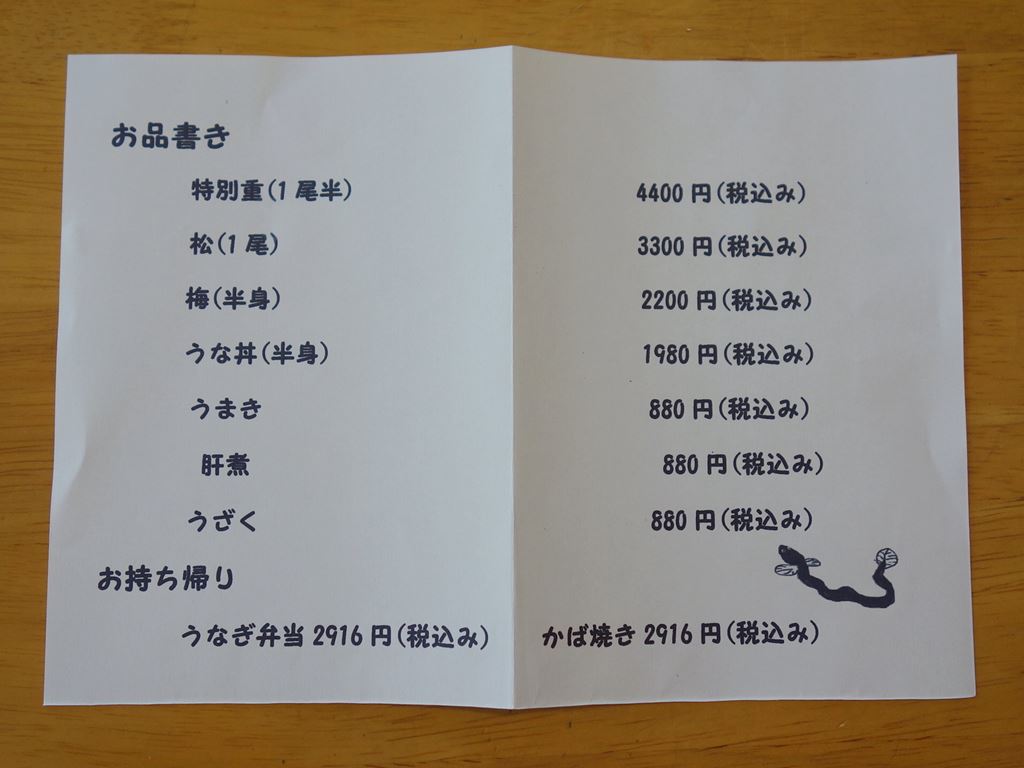 お品書き
特別重(1尾半) 4400円(税込み)
松(1尾) 3300円(税込み)
梅(半身) 2200円(税込み)
うな丼(半身) 1980円(税込み)
うまき 880円(税込み)
肝煮 880円(税込み)
うざく 880円(税込み)
お持ち帰り
うなぎ弁当2916円(税込み) かば焼き2916円(税込み)